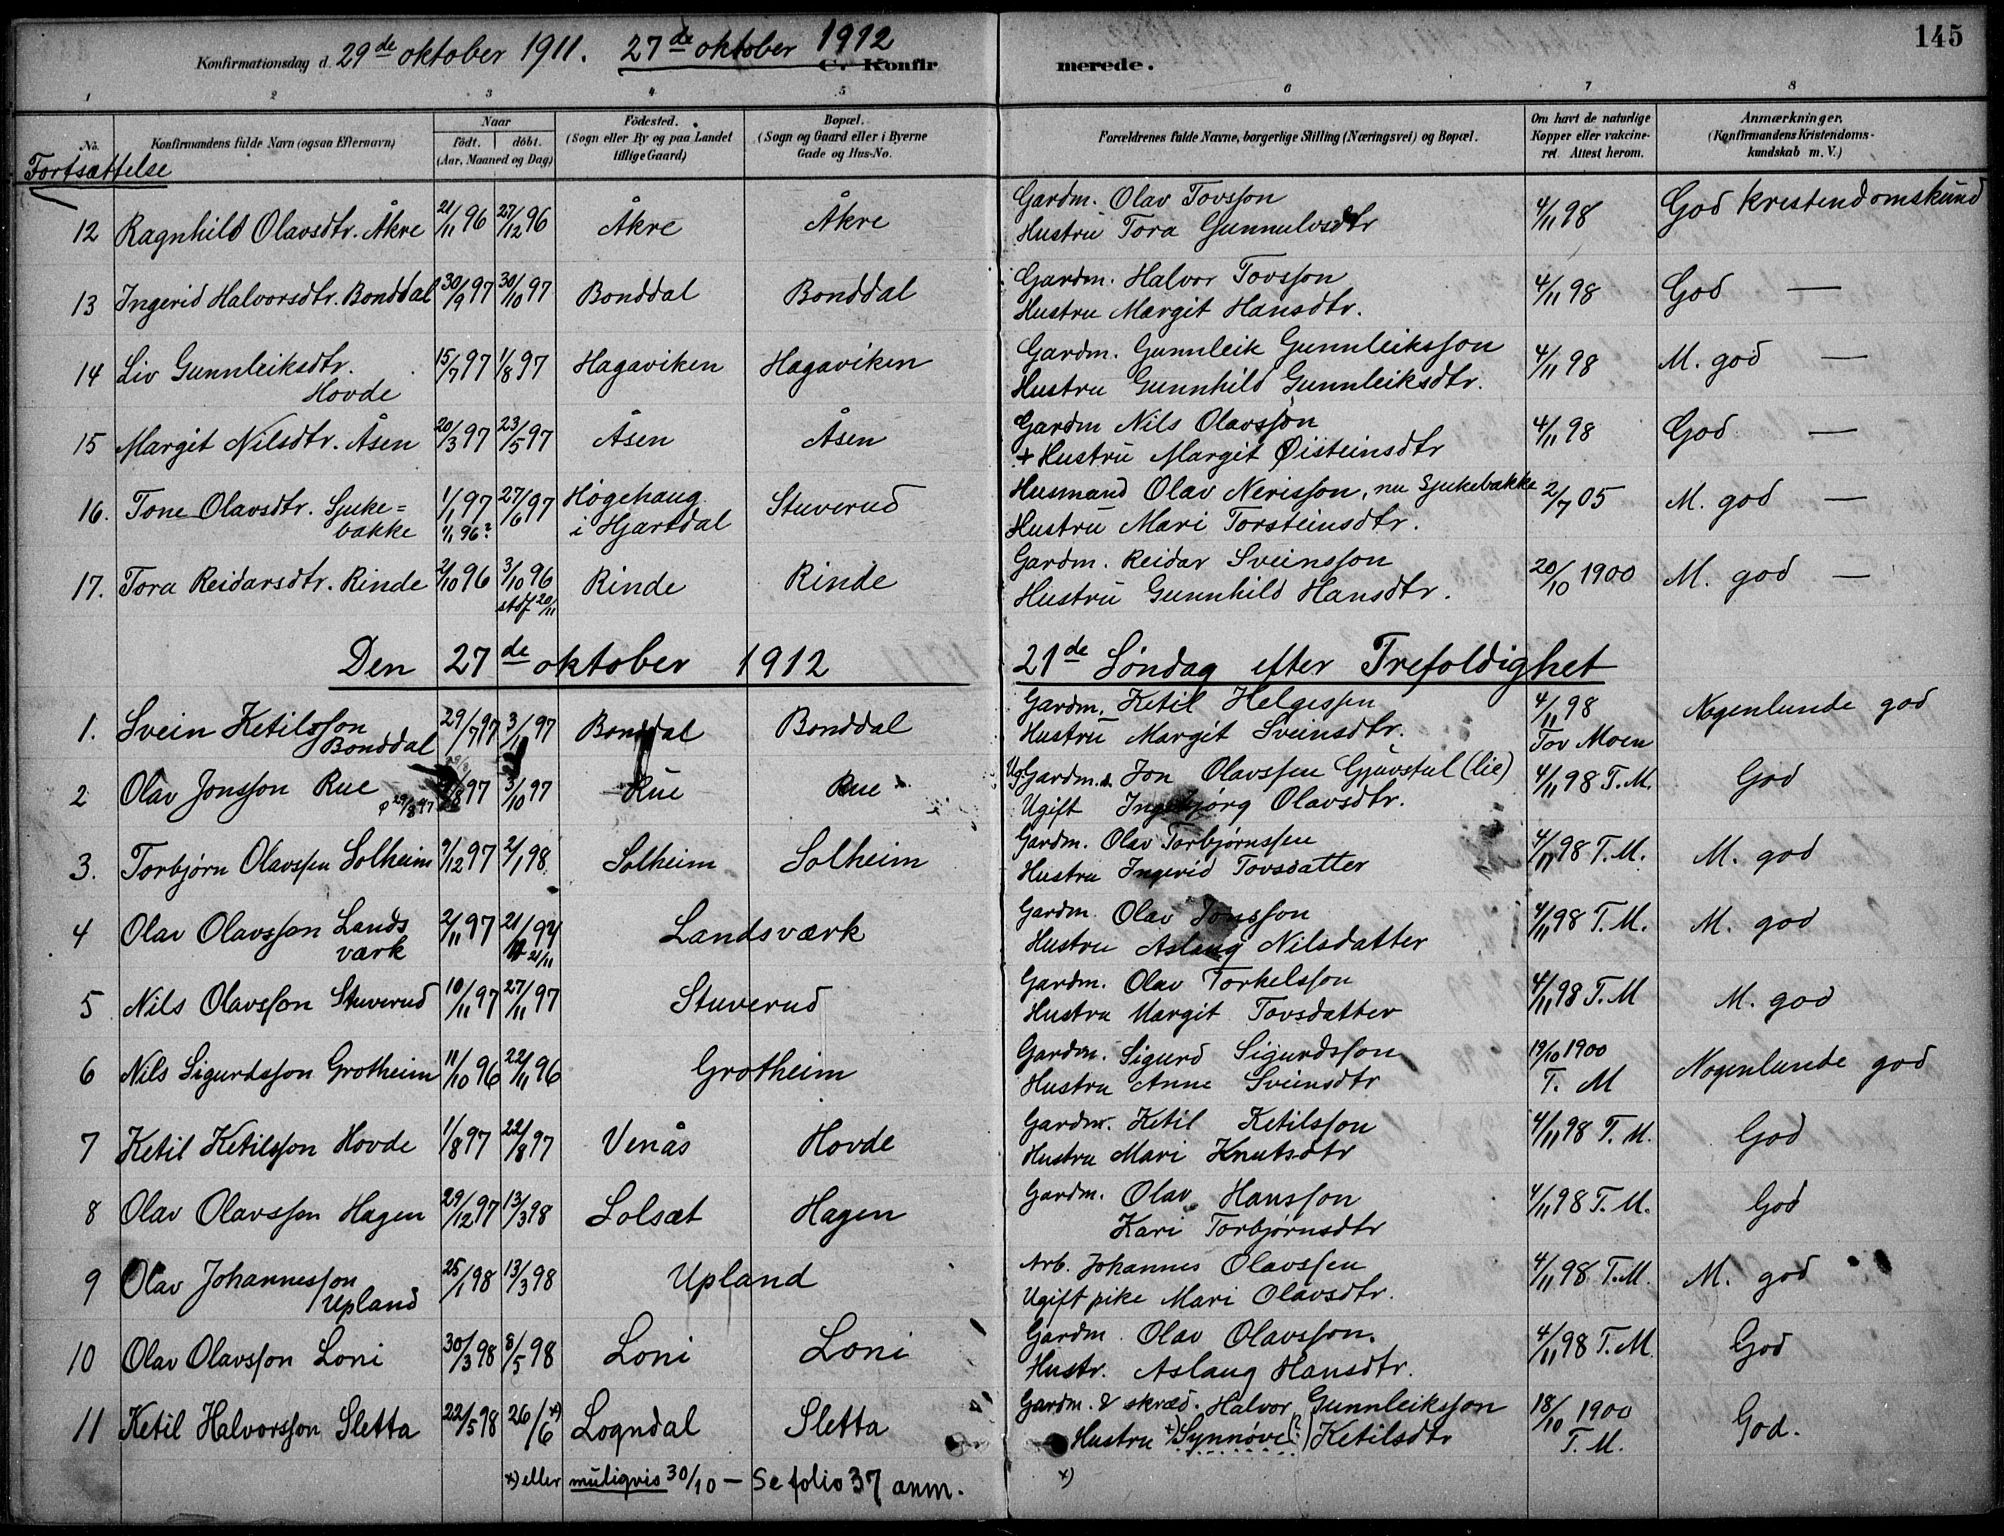 145
Konfirmationsdag d. 29de oktober 1911. 27de oktober 1912
C. Konfirmerede.
1 2 3 4 5 6 7 8
No. Konfirmandens fulde Navn (ogsaa Efternavn) Naar født. døbt. (Aar, Maaned og Dag) Fødested. (Sogn eller By og paa Landet tillige Gaard) Bopæl. (Sogn og Gaard eller i Byerne Gade og Hus-No. Forældrenes fulde Navne, borgerlige Stilling (Næringsvei) og Bopæl. Om havt de naturlige Kopper eller vakcineret Attest herom. Anmærkninger. (Konfirmandens Kristendomskundskab m. V.)
Fortsættelse
12 Ragnhild Olavsdtr. Åkre 21/11 96 27/12 96 Åkre Åkre Gardm. Olav Tovsson 4/11 98 God kristendomskund
Hustru Tora Gunnulvsdtr
13 Ingerid Halvorsdtr. Bonddal 30/9 97 30/10 97 Bonddal Bonddal Gardm. Halvor Tovsson 4/11 98 God —
Hustru Margit Hansdtr.
14 Liv Gunnleiksdtr. Hovde 15/7 97 1/8 97 Hagaviken Hagaviken Gardm. Gunnleik Gunnleiksson 4/11 98 M. god —
Hustru Gunnhild Gunnleiksdtr.
15 Margit Nilsdtr. Åsen 20/3 97 23/5 97 Åsen Åsen Gardm Nils Olavsson 4/11 98 God —
+ Hustru Margit Øisteinsdtr
16. Tone Olavsdtr. Sjuke= bakke 1/1 97 1/1 96? 27/6 97 Høgehaug i Hjartdal Stuverud Husmand Olav Nerisson, nu Sjukebakke 2/7 05 M. god —
Hustru Mari Torsteinsdtr.
17. Tora Reidarsdtr. Rinde 2/10 96 3/10 96 stdf 20/11 Rinde Rinde Gardm. Reidar Sveinsson 20/10 1900 M. god —
Hustru Gunnhild Hansdtr.
Den 27de oktober 1912 21de Søndag efter Trefoldighet
1. Svein Ketilsson Bonddal 29/7 97 3/10 97 Bonddal Bonddal Gardm. Ketil Helgessen 4/11 98 Tov Moen Nogenlunde god
Hustru Margit Sveinsdtr.
2 Olav Jonsson Rue 29/8 97 3/10 97 Rue Rue Ug Gardm. Jon Olavssen Gjuvstul (lie) 4/11 98 T. M. God
Ugift Ingebjørg Olavsdtr.
3. Torbjørn Olavssen Solheim 9/12 97 2/1 98. Solheim Solheim Gardm. Olav Torbjørnssen 4/11 98 T. M. M. god
Hustru Ingerid Tovsdatter
4 Olav Olavsson Lands værk 2/11 97 21/11 97 21/11 Landsværk Gardm. Olav Jonsson 4/11 98 T. M. M. god
Hustru Aslaug Nilsdatter
5 Nils Olavsson Stuverud 10/11 97 27/11 97 Stuverud Gardm. Olav Torkelsson 4/11 98 T. M M. god
Hustru Margit Tovsdatter
6 Nils Sigurdsson Grotheim 11/10 96 22/11 96 Grotheim Gardm. Sigurd Sigurdsson 19/10 1900 T. M Nogenlunde god
Hustru Anne Sveinsdtr
7 Ketil Ketilsson Hovde 1/8 97 22/8 97 Venås Hovde Gardm. Ketil Ketilsson 4/11 98 T. M. God
Hustru Mari Knutsdtr
8 Olav Olavsson Hagen 29/12 97 13/3 98 Solsæt Hagen Gardm. Olav Hansson 4/11 98 T. M. God
Kari Torbjørnsdtr
9 Olav Johannesson Upland 25/1 98 13/3 98 Upland Arb. Johannes Olavssen 4/11 98 T. M. M. god
Ugift pike Mari Olavsdtr.
10 Olav Olavsson Loni 30/3 98 8/5 98 Loni Loni Gardm. Olav Olavsson. 4/11 98 T. M. God
Hustr. Aslaug Hansdtr.
11 Ketil Halvorsson Sletta 22/5 98 26/6 x) Logndal Sletta Gardm. & skræd. Halvor Gunnleiksson 18/10 1900 T. M. God.
Hustru x) Synnøve (?) Ketilsdtr
x) eller muligvis 30/10 — Se folio 37 anm. x)